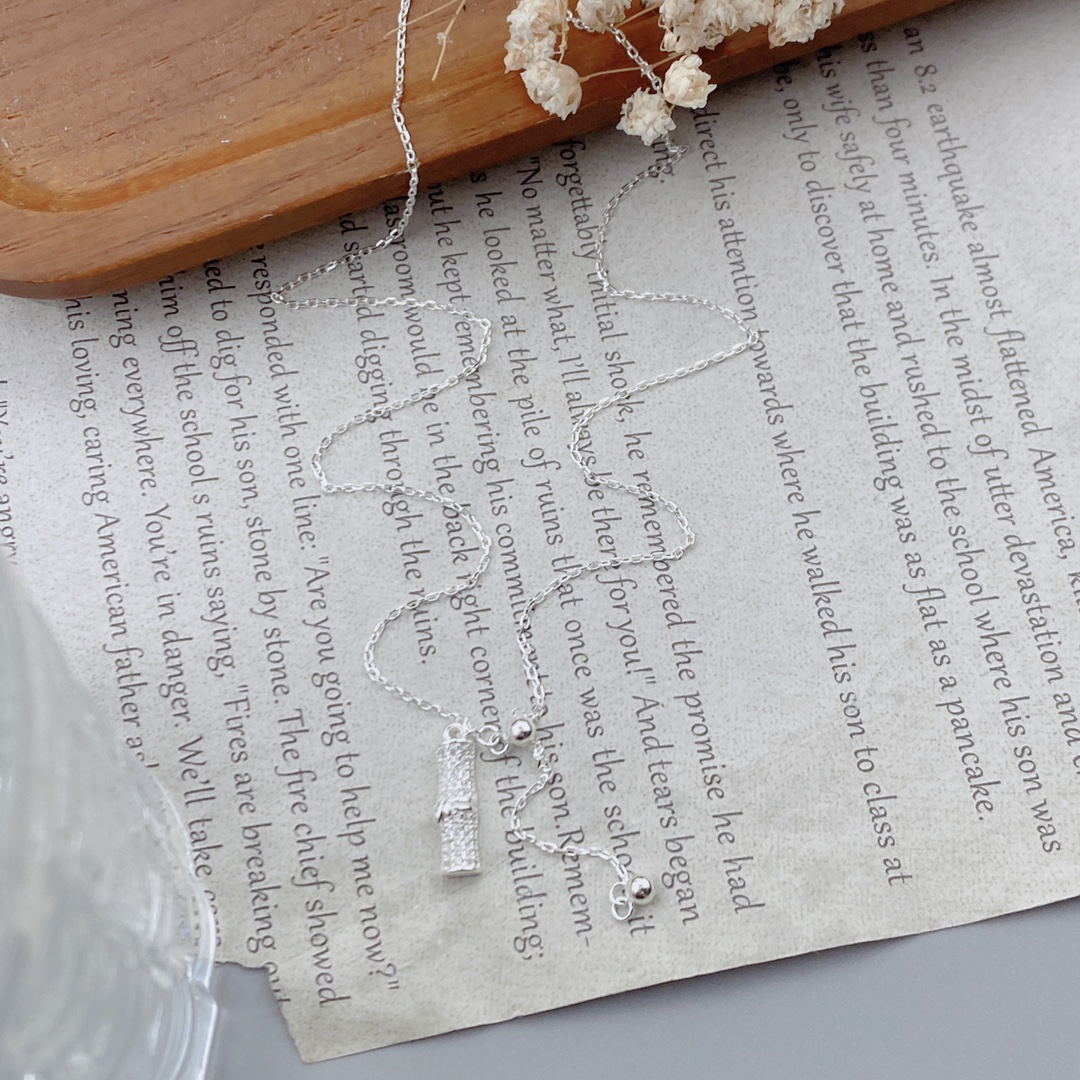 an 8.2 earthquake almost flattened America,
ss than four minutes. In the midst of utter devastation and
his wife safely at home and rushed to the school where his son was
be, only to discover that the building was as flat as a pancake.
direct his attention towards where he walked his son to class at
ing.
forgettably initial shock, he remembered the promise he had
"No matter what, I'll always be there for you!" And tears began
s he looked at the pile of ruins that once was the school, it
ut he kept remembering his commitment to his son. Remem-
lassroom would be in the back right corner of the building;
d started digging through the ruins.
responded with one line: "Are you going to help me now?"
ied to dig for his son, stone by stone. The fire chief showed
him off the school s ruins saying, "Fires are breaking out
ning everywhere. You're in danger. We'll take
his loving, caring American father
"You're angry